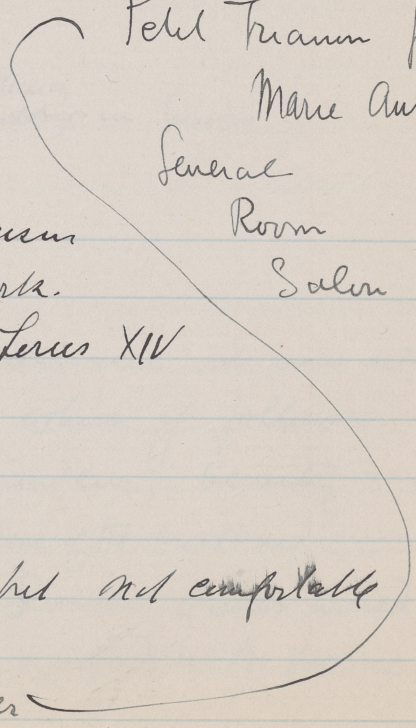 Petit Trianon
Marie An
General
Room
Salon
rk.
Louis XIV
but not comfortable